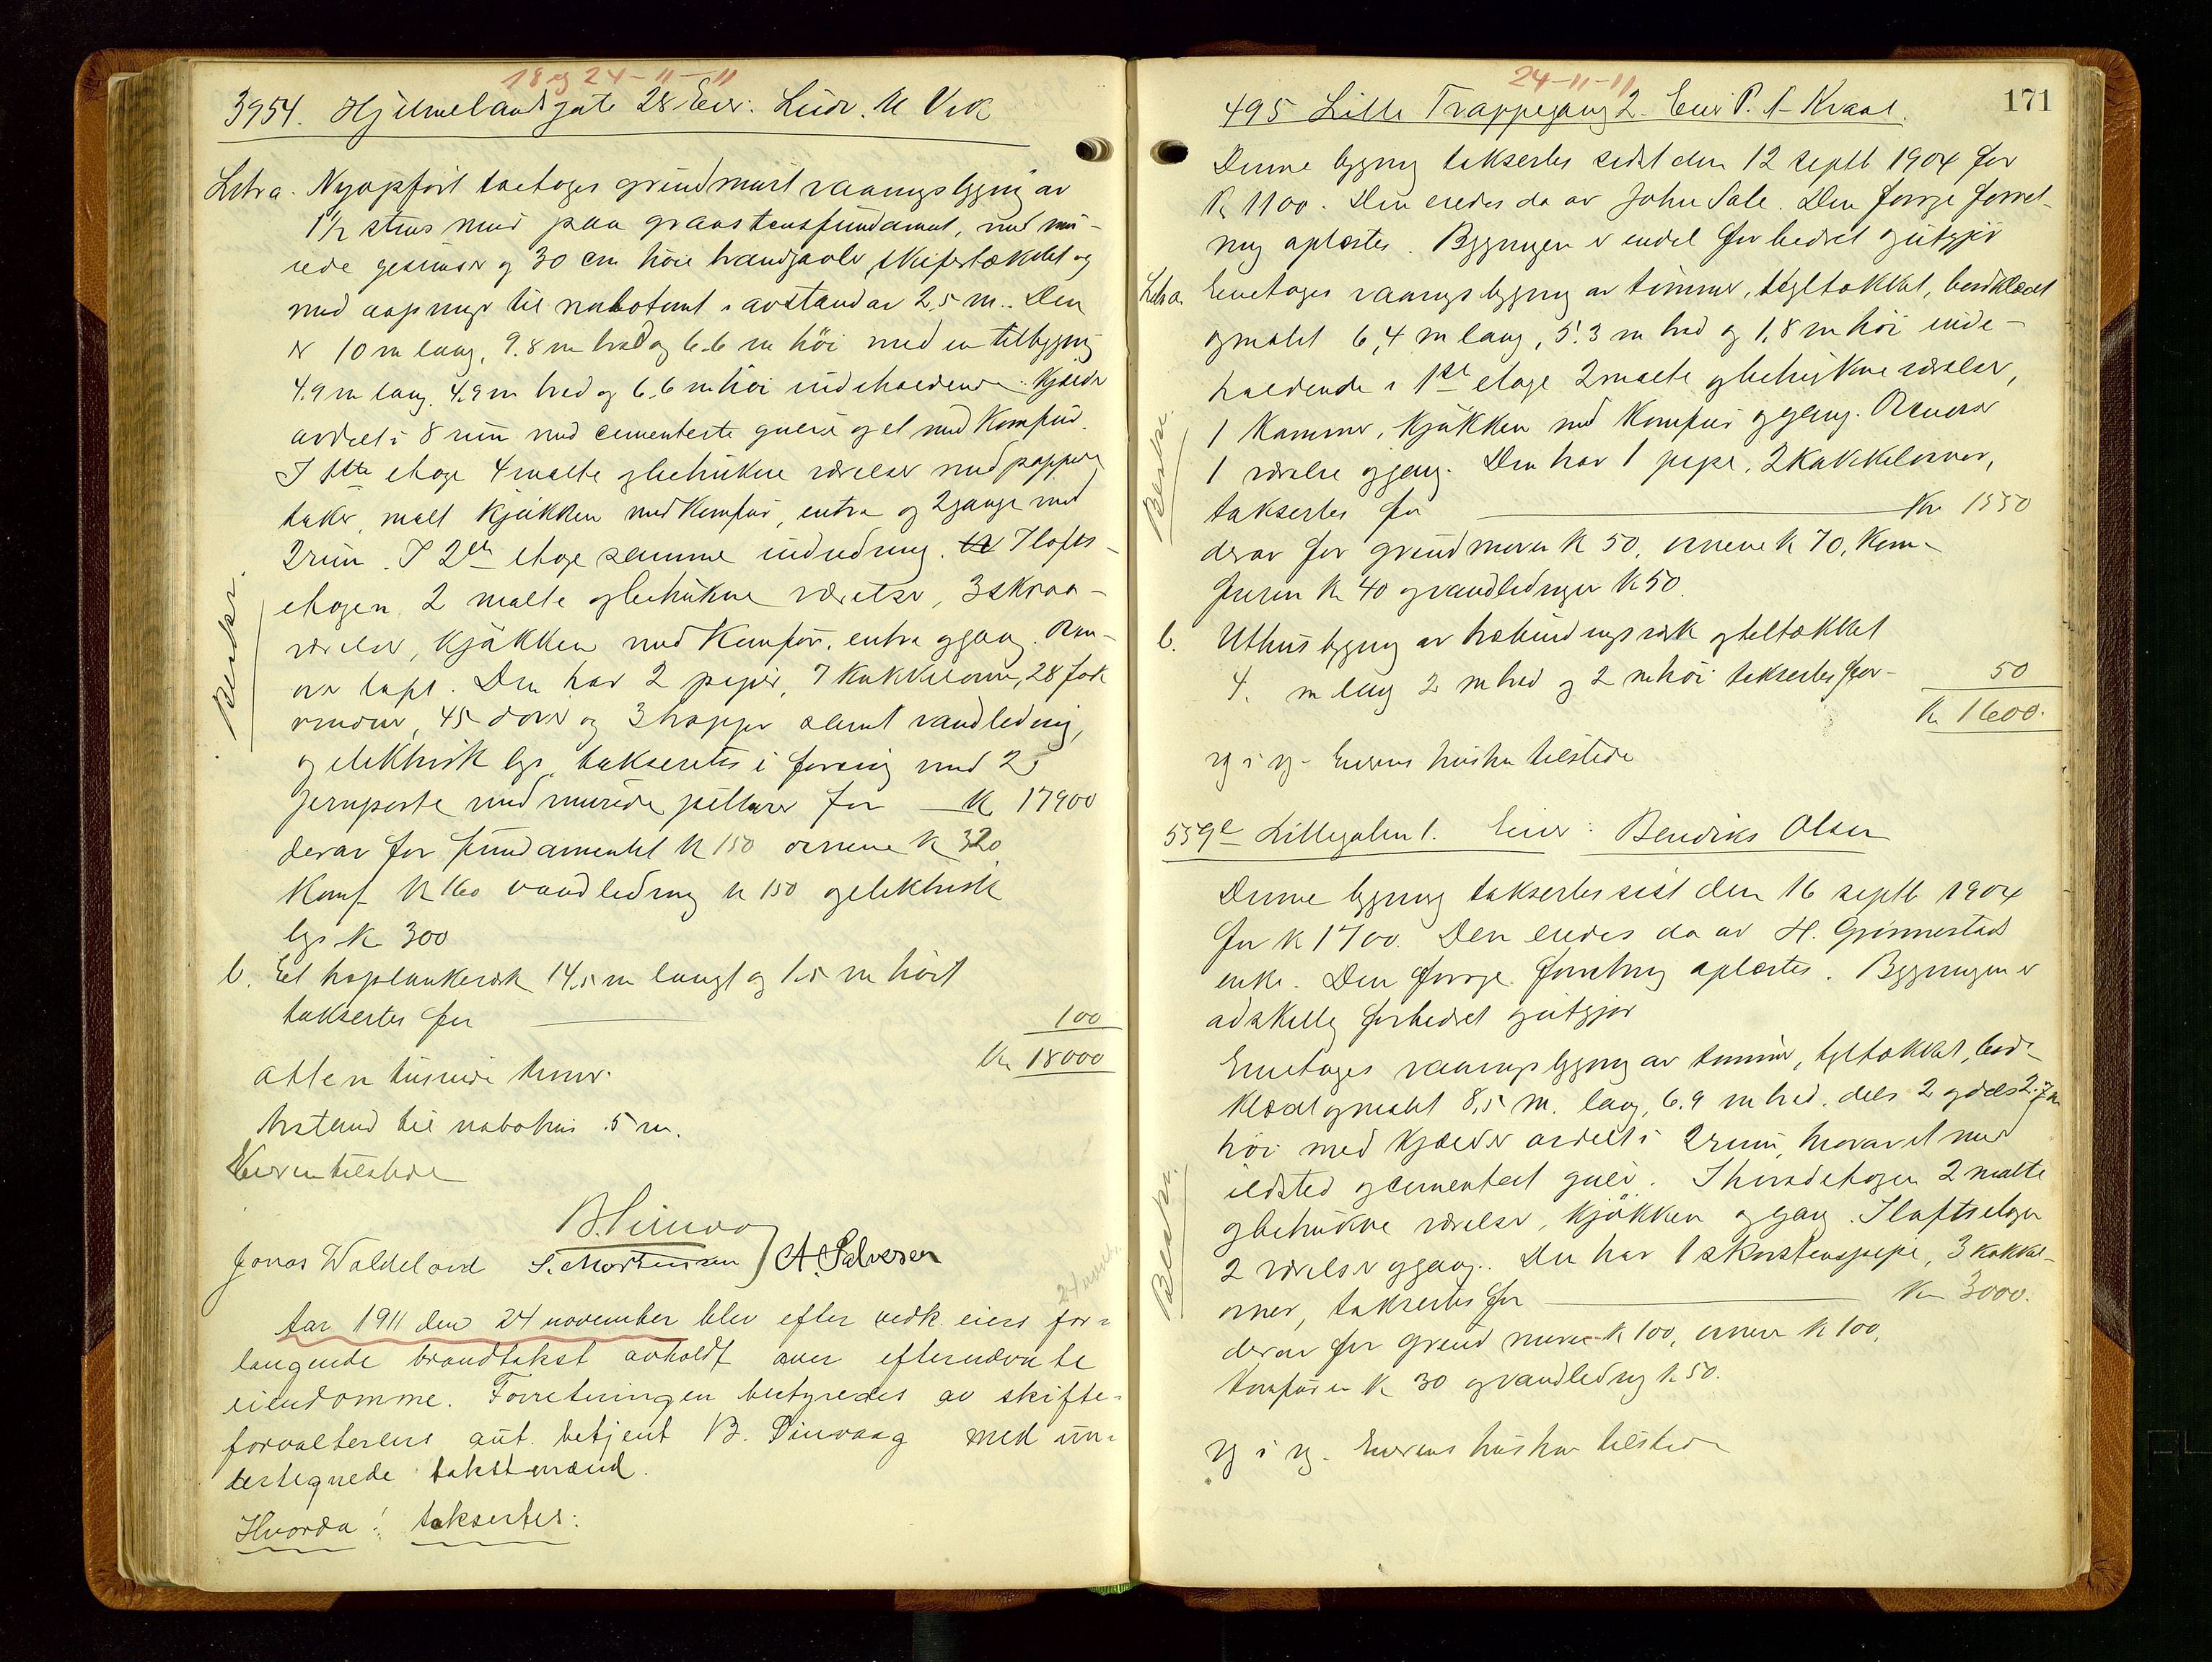 18 og 24-11-11
3954. Hjelmelandsgate 28 Eier: Ludv. M Vik
Litra a. Nyopført toetages grundmurt vaaningsbygning av
1½ stens mur paa graastensfundament, med mu-
rede gesimser og 30 cm høie brandgavle, skifertækket og
med aapninger til nabotomt i avstand av 2,5 m. Den
er 10 m lang, 9.8 m bred og 6.6 m høi med en tilbygning
4.9 m lang, 4.9 m bred og 6,6 m høi indeholdende: Kjælder
avdelt i 8 rum med cementerte gulve og et med Komfur.
I 1ste etage 4 malte og betrukne værelser med pappen
taker, malt kjøkken med Komfur, entre og 2 gange med
2 rum. I 2den etage samme indredning. I lofts-
etagen 2 malte og betrukne værelser, 3 skraa-
værelser, kjøkken med Komfur, entre og gang. Den-
over løpt. Den har 2 piper, 7 kakkelovne, 28 fok
vinduer, 45 dører og 3 trapper samt vandledning,
og elektrisk lys, takseretes i forening med 25
Jernporte med murede pillarer for — K 17900
derav for fundamentet K 150 ovnene K 320
Komf K 160 vandledning K 150 og elektrisk
lys K 300
b. Et træplankeverk 14,5 m langt og 1.5 m høit
taksertes for — 100
Kr 18000
Atten tusinde kroner.
Avstand til nabohus 5 m.
Eieren tilstede
B. Sinvaag
Jonas Waldeland S. Mortensen A. Salvesen
24 nov.
Aar 1911 den 24 november blev efter vedk. eiers for-
langende brandtakst avholdt over efternævnte
eiendomme. Forretningen bestyredes av skifte-
forvalterens aut. betjent B. Sinvaag med un-
dertegnede takstmænd.
Hvorda! taksertes:
24-11-11
171
495 Lille Trappegang 2. Eier P. A. Kvaal.
Denne bygning taksertes sidst den 12 septb 1904 for
K 1100. Den eiedes da av John Sale. Den forrige forret-
ning oplæstes. Bygningen er endel forbedret og utgjør
Litra a. Enetages vaaningsbygning av tømmer, tegltækket, bordklædt
og malet 6,4 m lang, 5.3 m bred og 1,8 m høi inde-
holdende i 1ste etage 2 malte og betrukne værelser,
1 Kammer, Kjøkken med Komfur og gang. Ovenover
1 værelse og gang. Den har 1 pipe, 2 kakkelovner,
taksertes for — Kr 1550
derav for grundmuren K 50, ovnene K 70, Kom-
furen K 40 og vandledningen K 50.
b. Uthusbygning av træbindingsverk og teltækket
4. m lang 2 m bred og 2 m høi taksertes for - 50
Kr 1600.
rg i rg. Eierens hustru tilstede
559e Lillegaten 1. Eier: Bendiks Olsen
Denne bygning taksertes sist den 16 septb 1904
for K 1700. Den eiedes da av H. Grønnestads
enke. Den forrige forretning oplæstes. Bygningen er
adskillig forbedret og utgjør
Enetages vaaningsbygning av tømmer, tegltækket, bord-
klædt og malet 8,5 m. lang, 6.9 m bred, dels 2 og dels 2.7 m
høi med kjælder avdelt i 2 rum, hvorav et med
ildsted og cementert gulv. I hovedetagen 2 malte
og betrukne værelser, kjøkken og gang. I loftsetagen
2 værelser og gang. Den har 1 skorstenspipe, 3 kakkel-
ovner, taksertes for — Kr 3000.
derav for grundmuren K 100, ovnene K 100,
Komfuren K 30 og vandledning K 50.
rg i rg. Eierens hustru tilstede